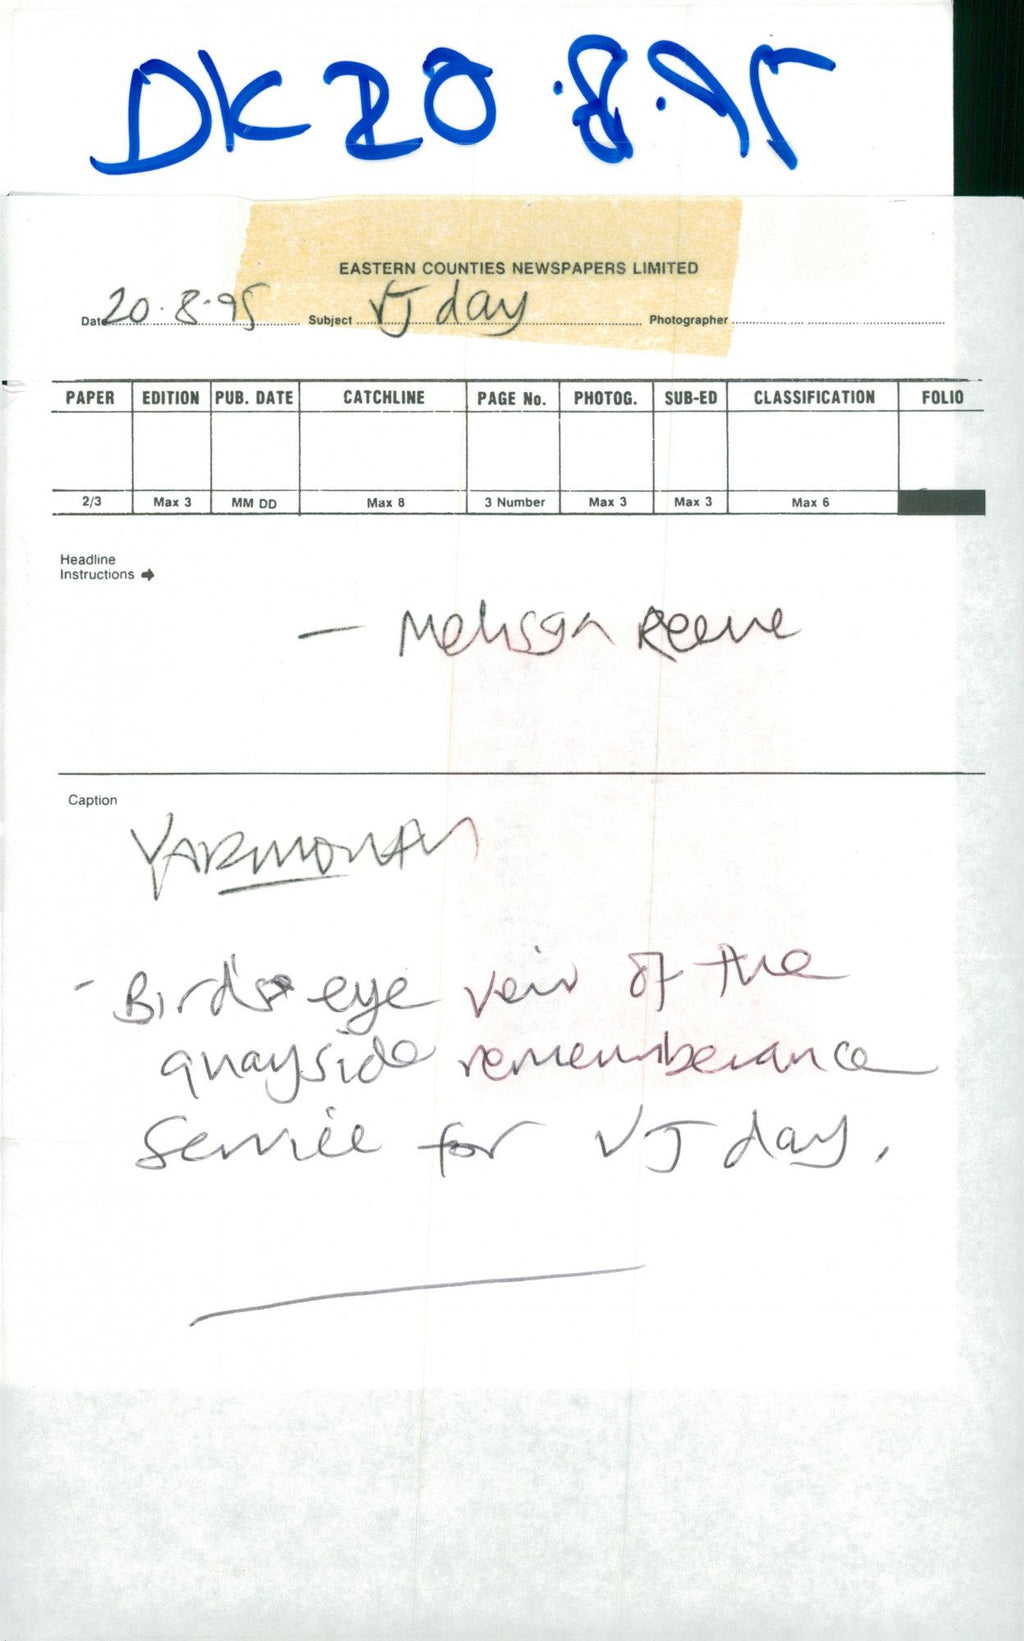 DK 20.8.95
EASTERN COUNTIES NEWSPAPERS LIMITED
Date 20.8.95 Subject VJ day Photographer
PAPER EDITION PUB. DATE CATCHLINE PAGE No. PHOTOG. SUB-ED CLASSIFICATION FOLIO
2/3 Max 3 MM DD Max 8 3 Number Max 3 Max 3 Max 6
Headline
Instructions →
— Melissa Reeve
Caption
YARMOUTH
- Bird's eye veiw of the
quayside rememberance
Service for VJ day.